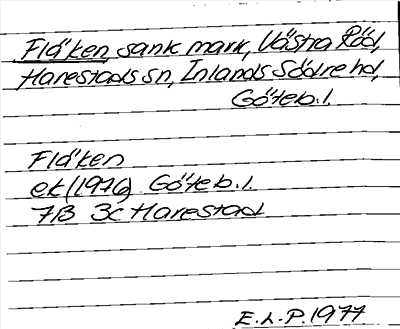 Flåken, sank mark, Västra Röd,
Harestads sn, Inlands Södre hd,
Göteb. l.
Flåken
ek (1976) Göteb. l.
7B 3c Harestad
E.L.P. 1977